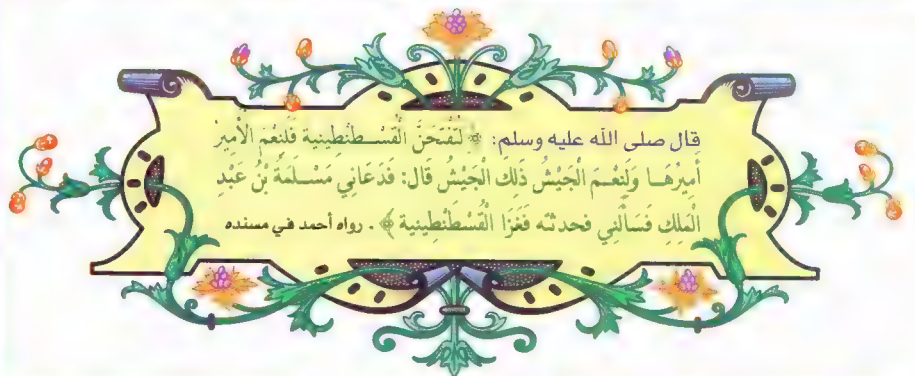 قال صلى الله عليه وسلم: ﴿ لَتُفْتَحَنَّ الْقُسْطَنْطِينِيَّةُ فَلَنِعْمَ الْأَمِيرُ
أَمِيرُهَا وَلَنِعْمَ الْجَيْشُ ذَلِكَ الْجَيْشُ قَالَ: فَدَعَانِي مَسْلَمَةُ بْنُ عَبْدِ
الْمَلِكِ فَسَأَلَنِي فحدثته فَغَزَا الْقُسْطَنْطِينِية ﴾. رواه أحمد في مسنده